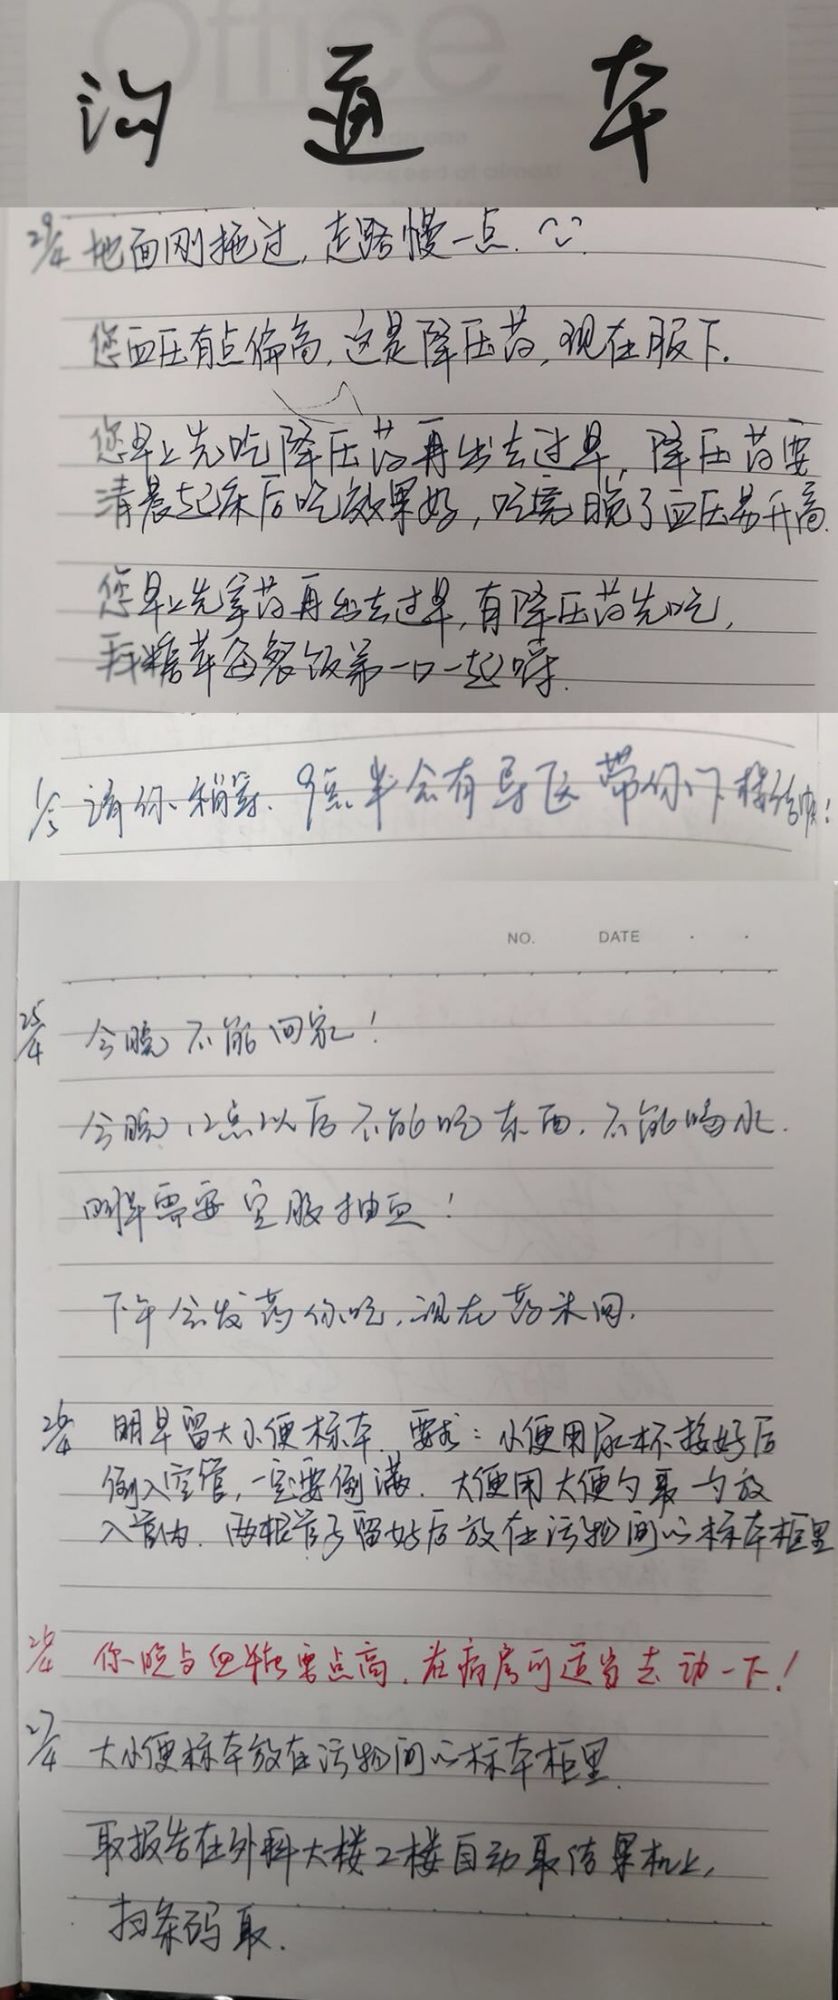 Office
沟通本
29/4 地面刚拖过，走路慢一点.
您血压有点偏高，这是降压药，现在服下.
您早上先吃降压药再出去过早，降压药要
清晨起床后吃效果好，吃完晚了血压易升高.
您早上先拿药再出去过早，有降压药先吃，
糖苹每餐饭第一口一起嚼.
1/5 请你稍等. 9点半会有导医带你下楼结帐！
NO. DATE
25/4 今晚不能回家！
今晚12点以后不能吃东西. 不能喝水.
明早需要空腹抽血！
下午会发药你吃，现在药未回.
26/4 明早留大小便标本. 要求：小便用尿杯接好后
倒入空管，一定要倒满. 大便用大便勺取一勺放
入管内. 两根管子留好后放在污物间的标本框里
26/4 你晚与血糖要点高，在病房可适当走动一下！
27/4 大小便标本放在污物间的标本柜里.
取报告在外科大楼2楼自动取结果机上，
扫条码取.